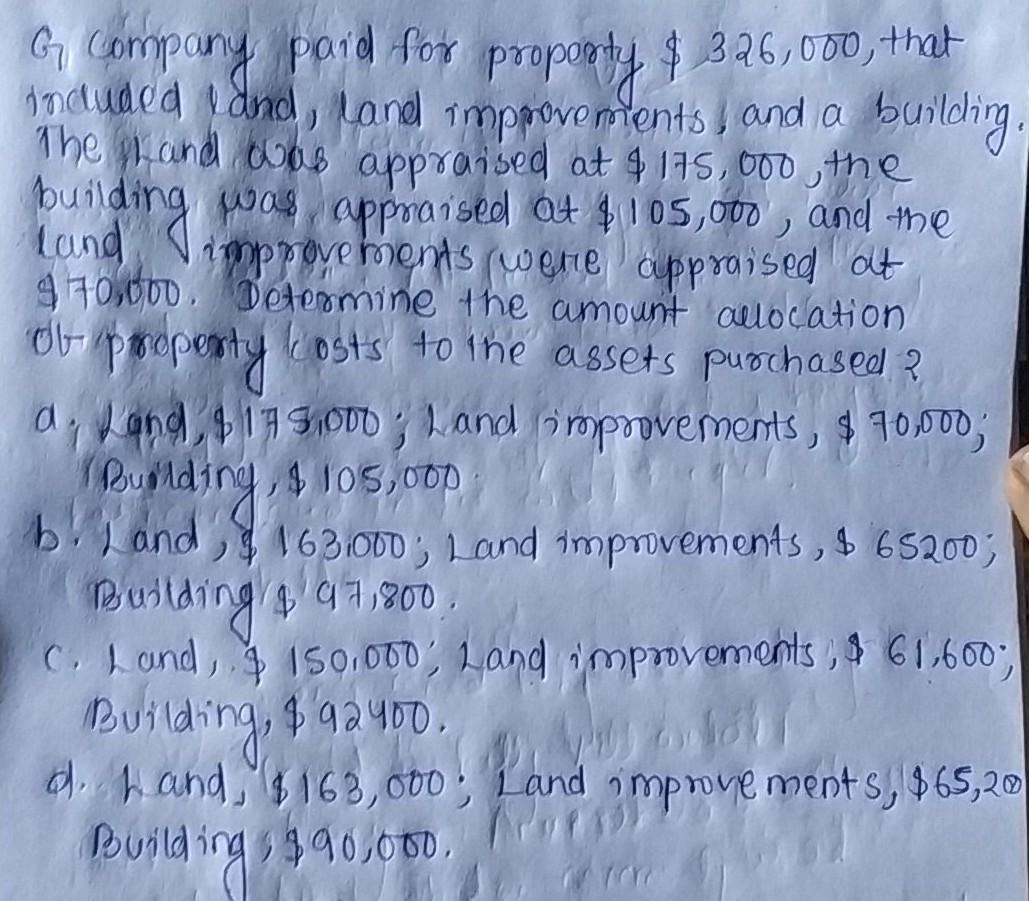 G Company paid for property $ 326,000, that
included land, land improvements, and a building.
The Land was appraised at $ 175,000, the
building was appraised at $ 105,000, and the
land improvements were appraised at
$ 70,000. Determine the amount allocation
of property costs to the assets purchased?
a. Land, $ 175,000; Land improvements, $ 70,000;
Building, $ 105,000.
b. Land, $ 163,000; Land improvements, $ 65200;
Building $ 97,800.
c. Land, $ 150,000; Land improvements, $ 61,600;
Building, $ 92400.
d. Land, $ 163,000; Land improvements, $65,200
Building, $90,000.